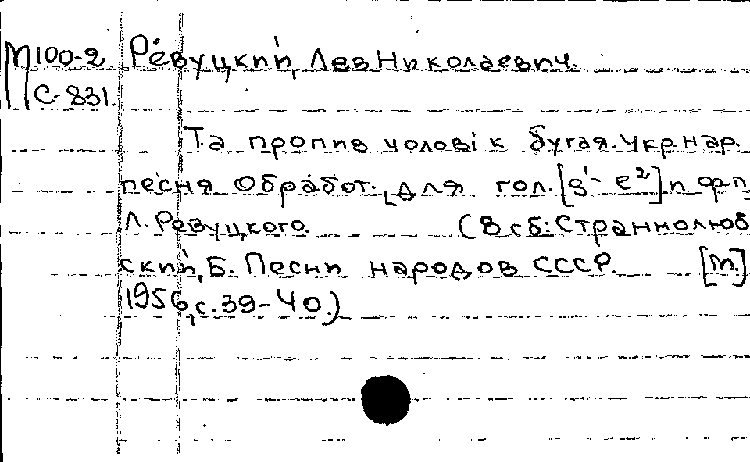 М100-2 Ревуцкий, Лев Николаевич.
С-831.
Та пропив чоловiк бугая. Укр. нар.
песня Обработ. [для гол. [g¹-e²] и ф-п
Л. Ревуцкого. (В сб: Страннолюб
ский, Б. Песни народов СССР. [М.]
1956, с. 39-40.)